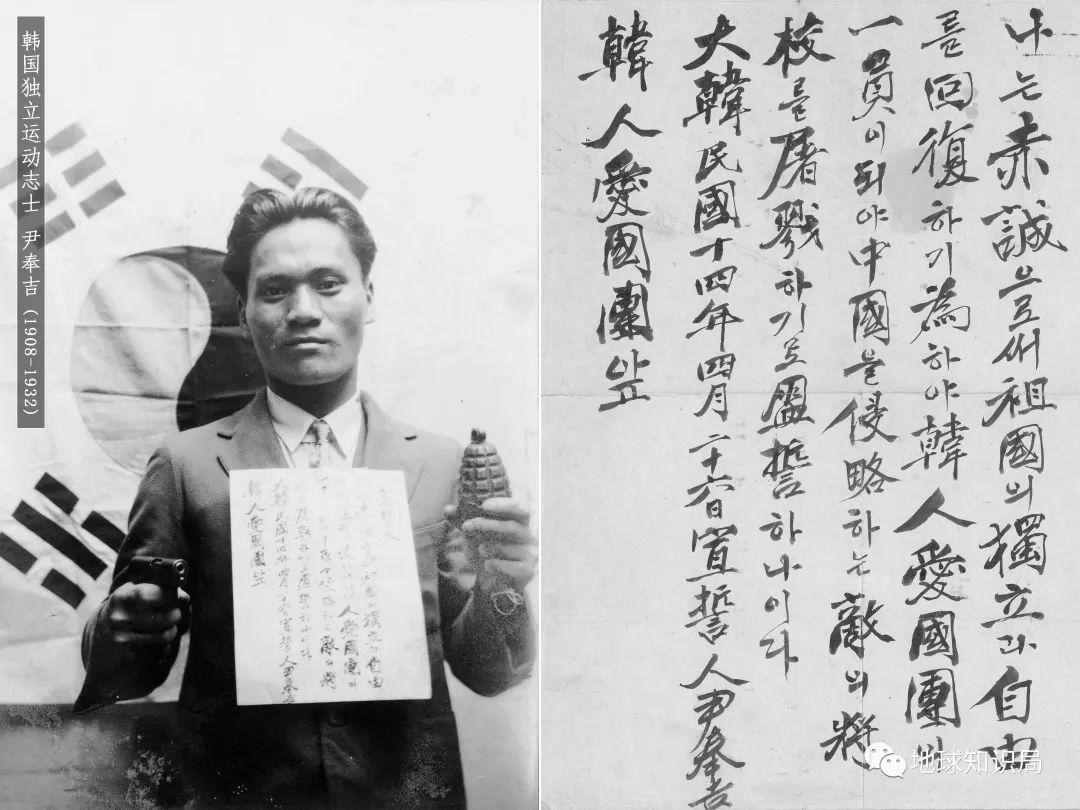 韩国独立运动志士 尹奉吉(1908-1932)
人愛國團의
敵의將
韓人愛國團앞
나는赤誠으로써祖國의獨立과自由
를回復하기爲하야韓人愛國團의
一員이되야中國을侵略하는敵의將
校를屠戮하기로盟誓하나이다
大韓民國十四年四月二十六日宣誓人尹奉吉
韓人愛國團앞
地球知识局